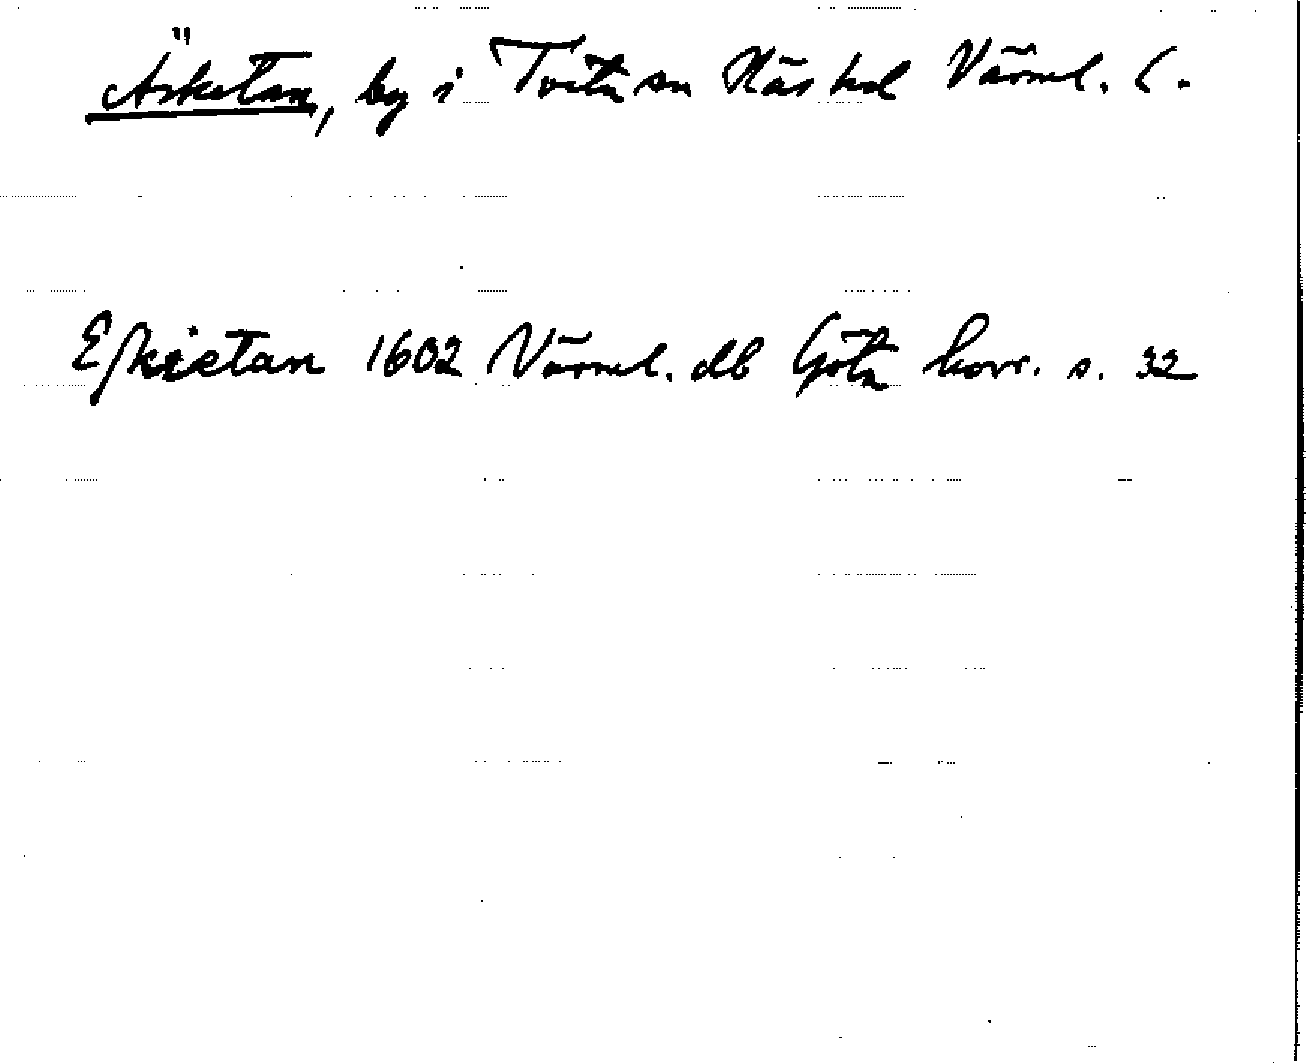 Äsketan, by i Tveta sn Näs hd Värml. l.
Eskietan 1602 Värml. db Göta hovr. s. 32